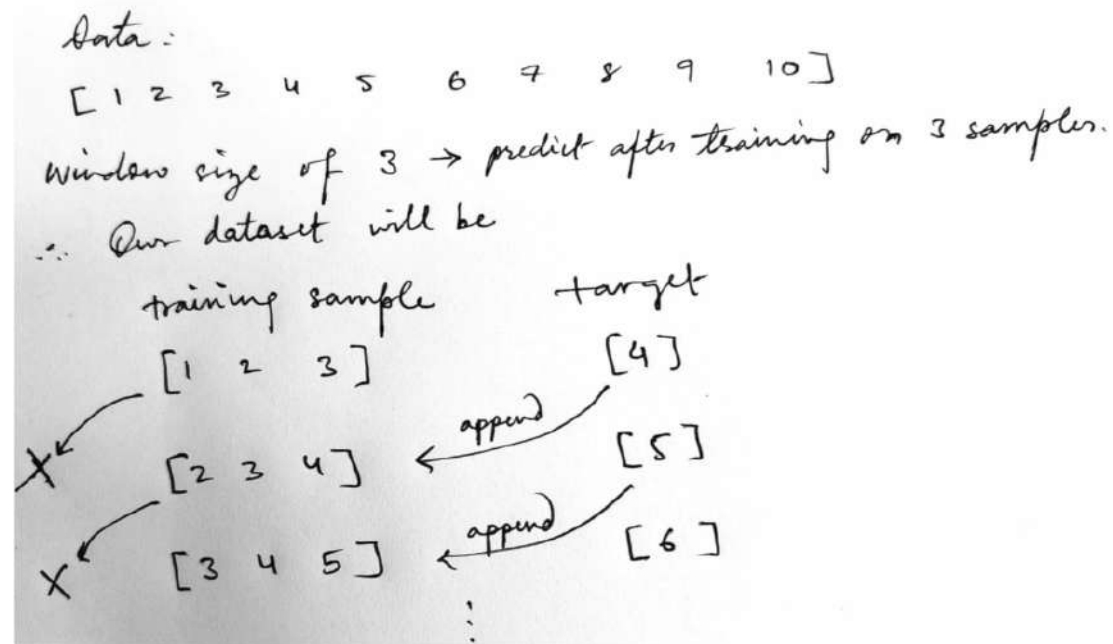 Data :
[ 1 2 3 4 5 6 7 8 9 10 ]
window size of 3 → predict after training on 3 samples.
∴ Our dataset will be
training sample target
[1 2 3] [4]
append
X [2 3 4] ← [5]
append
X [3 4 5] ← [6]
⋮